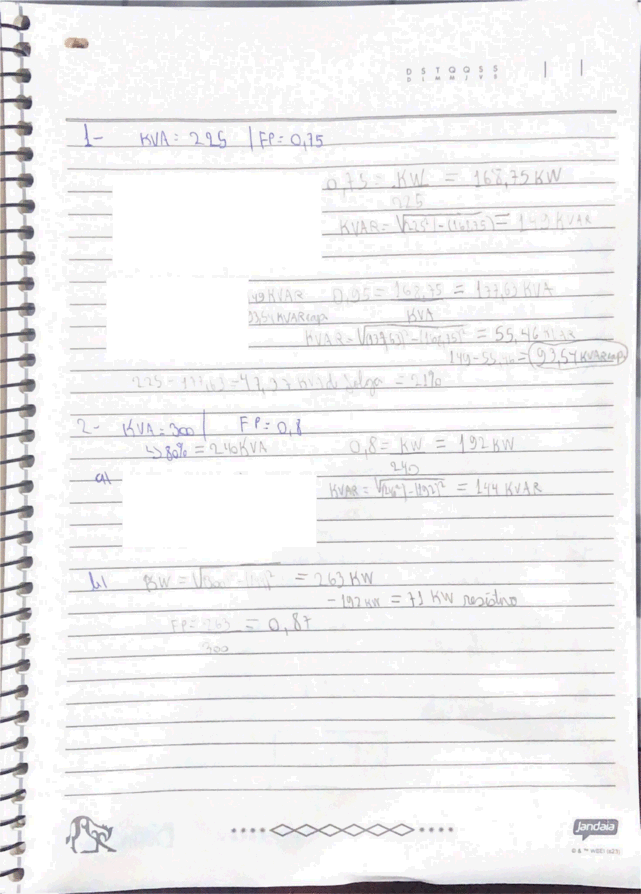 D S T Q Q S S
D L M M J V S
1- KVA = 225 | FP = 0,75
0,75 = KW = 168,75 KW
225
KVAR = √(225²)-(168,75)² = 149 KVAR
149 KVAR 0,95 = 168,75 = 177,63 KVA
93,54 KVARcap KVA
KVAR = √(177,63)²-(168,75)² = 55,46 KVAR
149-55,46 = 93,54 KVARcap
225-177,63 = 47,37 KVA de folga = 21%
2- KVA = 300 | FP = 0,8
↳ 80% = 240KVA 0,8 = KW = 192 KW
240
a) KVAR = √(240²)-(192)² = 144 KVAR
b) KW = = 263 KW
-192 KW = 71 KW resistivo
FP = 263 = 0,87
300
Jandaia